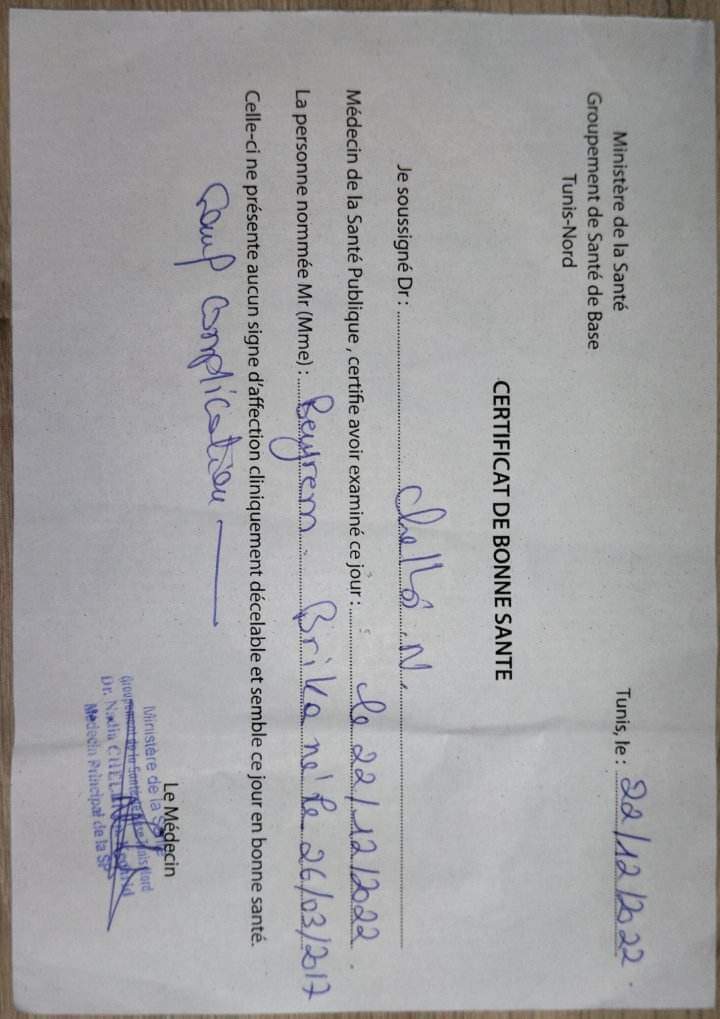 Ministère de la Santé
Groupement de Santé de Base
Tunis-Nord
Tunis, le : 22/12/2022.
CERTIFICAT DE BONNE SANTE
Je soussigné Dr : Chelli .N.
Médecin de la Santé Publique , certifie avoir examiné ce jour : le 22/12/2022.
La personne nommée Mr (Mme) : Beyrem Brika né le 26/03/2017
Celle-ci ne présente aucun signe d'affection cliniquement décelable et semble ce jour en bonne santé.
sauf complication
Le Médecin
Ministère de la
Groupement de la Santé de Base Tunis Nord
Dr.
Médecin Principal de la SP